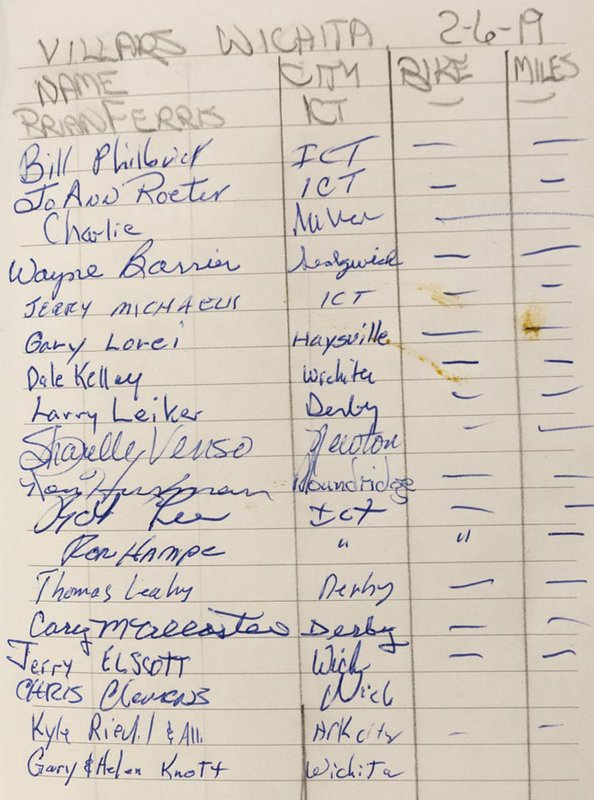 VILLARS WICHITA 2-6-19
NAME CITY BIKE MILES
BRIAN FERRIS ICT — —
Bill Philbrick ICT — —
Jo Ann Roeter ICT — —
Charlie —
Wayne Barrier Sedgwick — —
JERRY MICHAELIS ICT — —
Gary Lorei Haysville — —
Dale Kelley Wichita — —
Larry Leiker Derby — —
Newton — —
Moundridge — —
ICT — —
Ron HAMPE " " —
Thomas Leahy Derby — —
Derby — —
Jerry ELSCOTT Wich — —
CHRIS Clemens Wich
Kyle & Ali. Ark city — —
Gary & Helen Knott Wichita